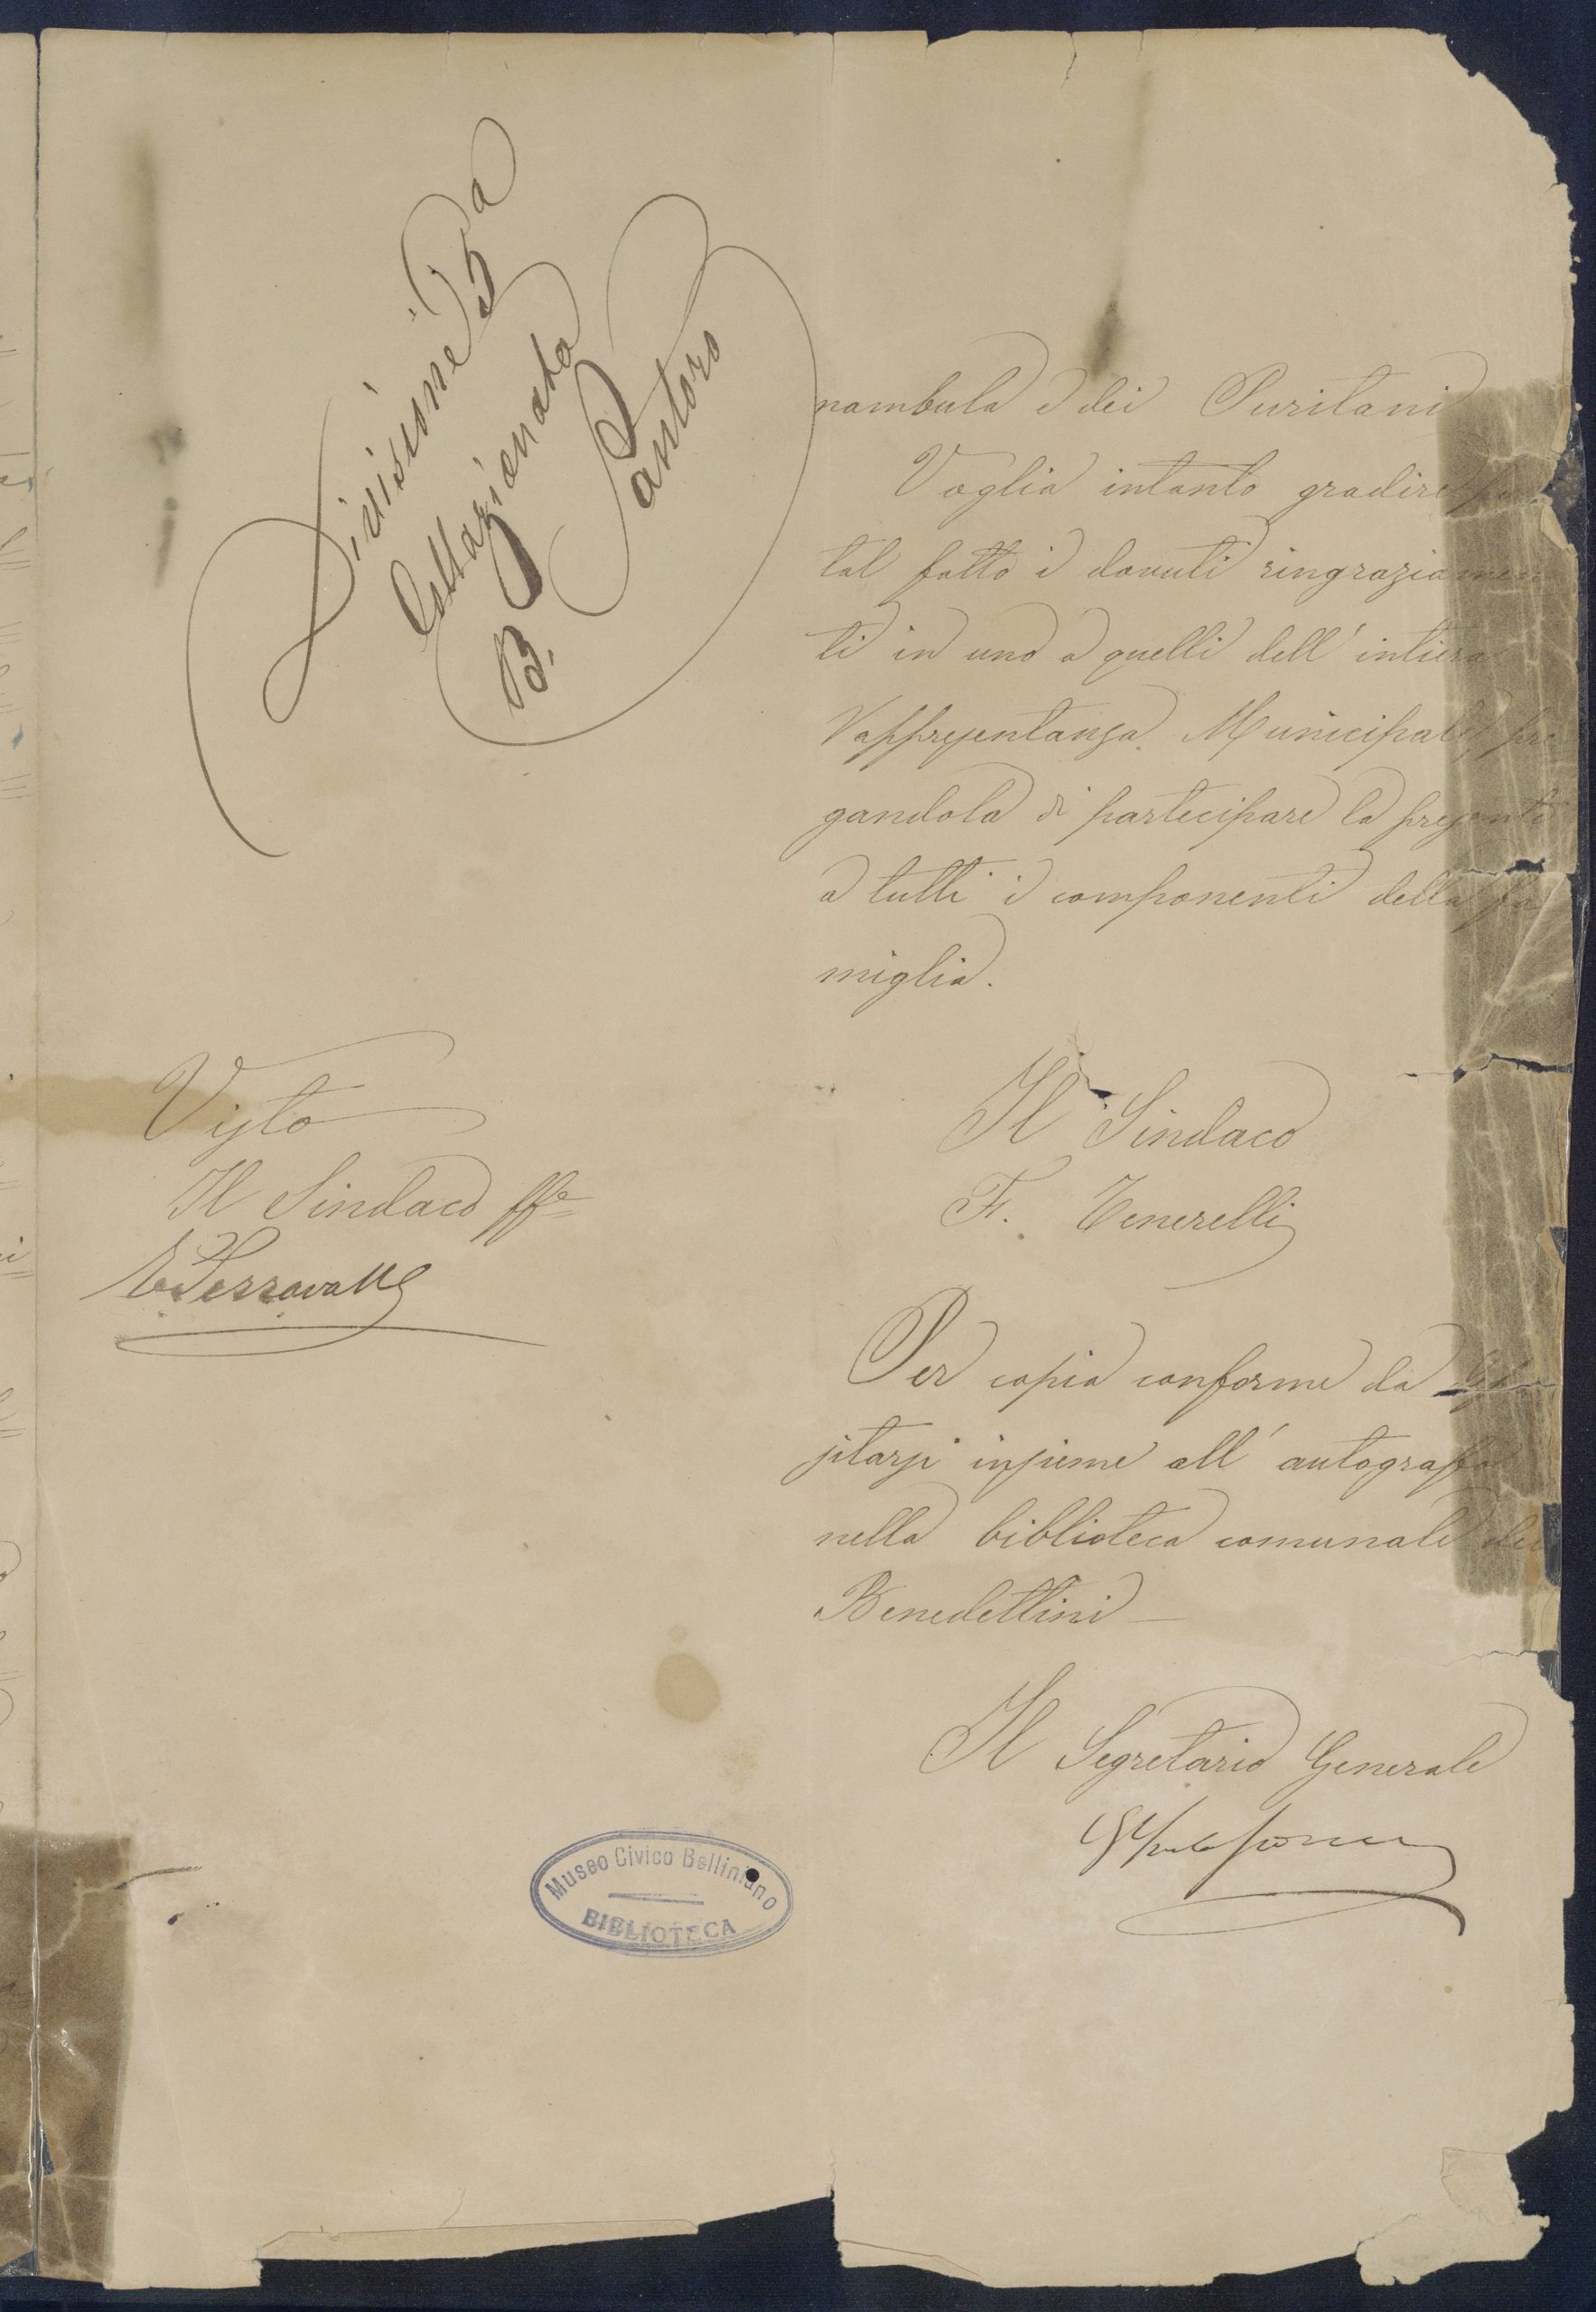 Divisione 5a
Collazionata
B. Santoro
nambula e dei Puritani
Voglia intanto gradire per
tal fatto i dovuti ringraziamen
ti in uno a quelli dell' intiera
Rappresentanza Municipale, pre
gandola di partecipare la presente
a tutti i componenti della fa
miglia.
Il Sindaco
F. Tenerelli
Visto
Il Sindaco ffe
Per copia conforme da depo
sitarsi insieme all' autografo
nella biblioteca comunale dei
Benedettini
Il Segretario Generale
Museo Civico Belliniano
BIBLIOTECA